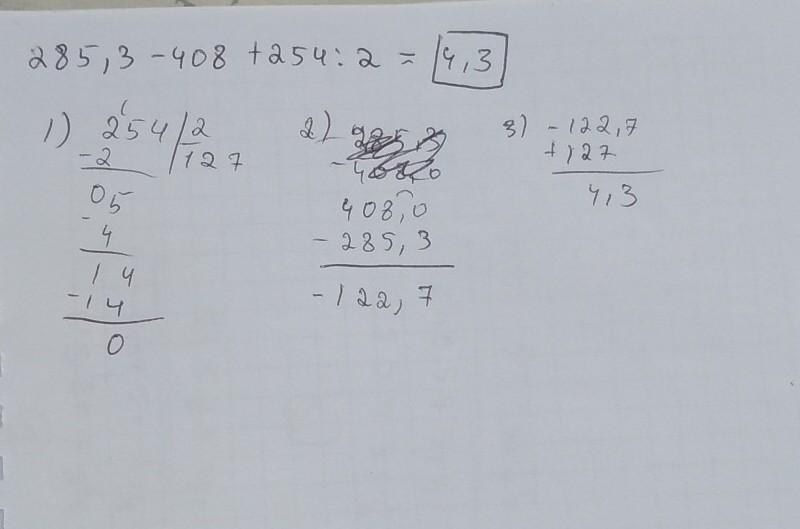 285,3 - 408 + 254 : 2 = 4,3
1) 254 | 2
- 2 | 127
05
- 4
14
- 14
0
2)
408,0
- 285,3
- 122,7
3) - 122,7
+ 127
4,3